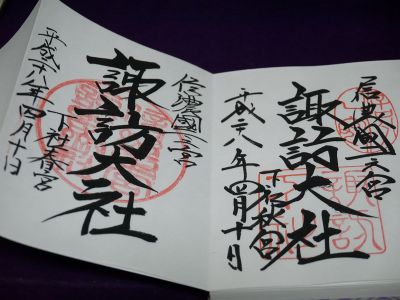 信濃國一之宮
諏訪大社
下社秋宮
平成二十八年四月十日
信濃國一之宮
諏訪大社
下社春宮
平成二十八年四月十日